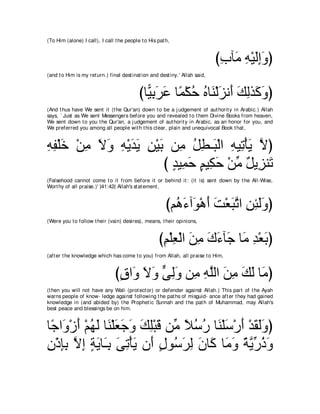 (To Him (alone) I call), I call the people to His path,
(وَإِلَيْهِ مَـَابِ)
(and to Him is my return.) final destination and destiny.' Allah said,
(وَكَذلِكَ أَنزَلْنَاهُ حُكْمًا عَرَبِيًّا)
(And thus have We sent it (the Qur'an) down to be a judgement of authority in Arabic.) Allah
says, `Just as We sent Messengers before you and revealed to them Divine Books from heaven,
We sent down to you the Qur'an, a judgement of authority in Arabic, as an honor for you, and
We preferred you among all people with this clear, plain and unequivocal Book that,
(لاَّ يَأْتِيهِ الْبَـطِلُ مِن بَيْنِ يَدَيْهِ وَلاَ مِنْ خَلْفِهِ
تَنزِيلٌ مِّنْ حَكِيمٍ حَمِيدٍ )
(Falsehood cannot come to it from before it or behind it: (it is) sent down by the All-Wise,
Worthy of all praise.)' )41:42( Allah's statement,
(وَلَئِنِ اتَّبَعْتَ أَهْوَآءَهُم)
(Were you to follow their (vain) desires), means, their opinions,
(بَعْدِ مَا جَآءَكَ مِنَ الْعِلْمِ)
(after the knowledge which has come to you) from Allah, all praise to Him,
(مَا لَكَ مِنَ اللَّهِ مِن وَلِىٍّ وَلاَ وَاقٍ)
(then you will not have any Wali (protector) or defender against Allah.) This part of the Ayah
warns people of knowledge following the paths of misguidance after they had gained
knowledge in (and abided by) the Prophetic Sunnah and the path of Muhammad, may Allah's
best peace and blessings be on him.
(وَلَقَدْ أَرْسَلْنَا رُسُلاً مِّن قَبْلِكَ وَجَعَلْنَا لَهُمْ أَزْوَاجًا
وَذُرِّيَّةً وَمَا كَانَ لِرَسُولٍ أَن يَأْتِىَ بِـَايَةٍ إِلاَّ بِإِذْنِ